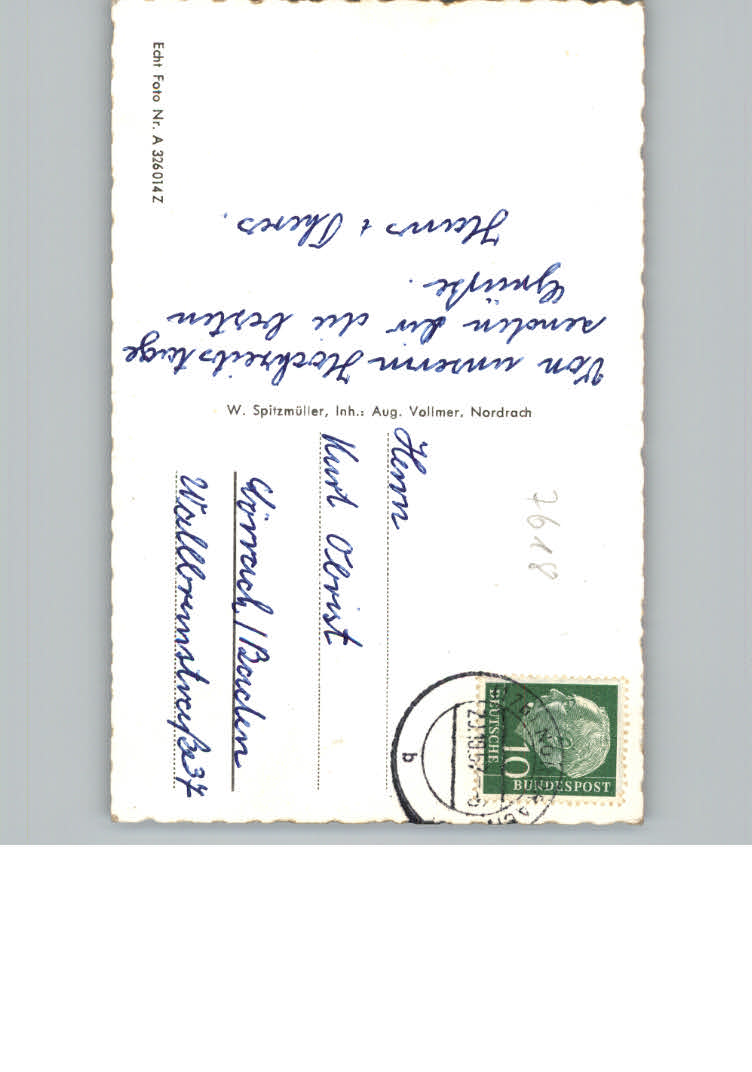 Von unserm Hochzeitstage
senden dir die besten
Grüße.
Hans & Theres.
Echt Foto Nr. A 326014 Z
W. Spitzmüller, Inh.: Aug. Vollmer, Nordrach
7618
Herrn
Kurt Obrist
Lörrach/Baden
Wallbrunstraße 37
DEUTSCHE
BUNDESPOST
10
b